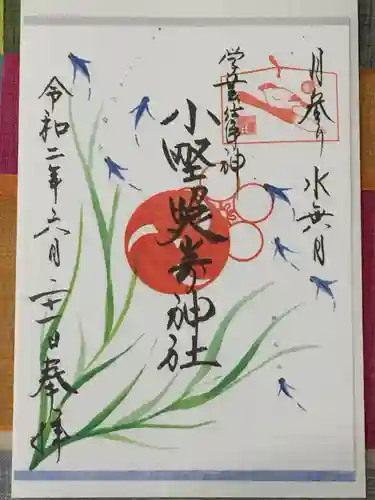 月参り 水無月
学業の神
小野照崎神社
令和二年六月二十一日奉拝